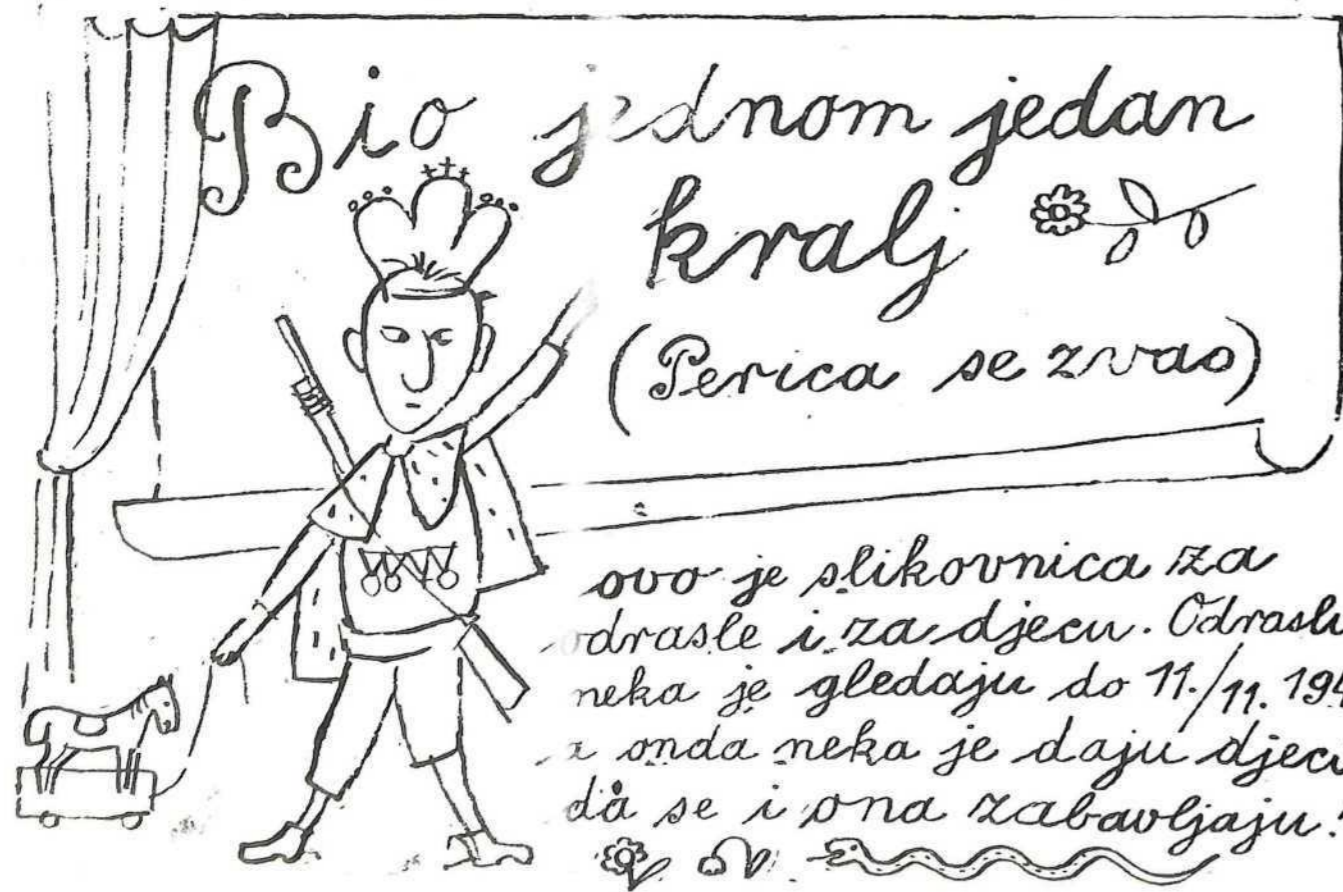 Bio jednom jedan
kralj
(Perica se zvao)
ovo je slikovnica za
odrasle i za djecu. Odrasli
neka je gledaju do 11./11. 194
a onda neka je daju djeci
da se i ona zabavljaju.